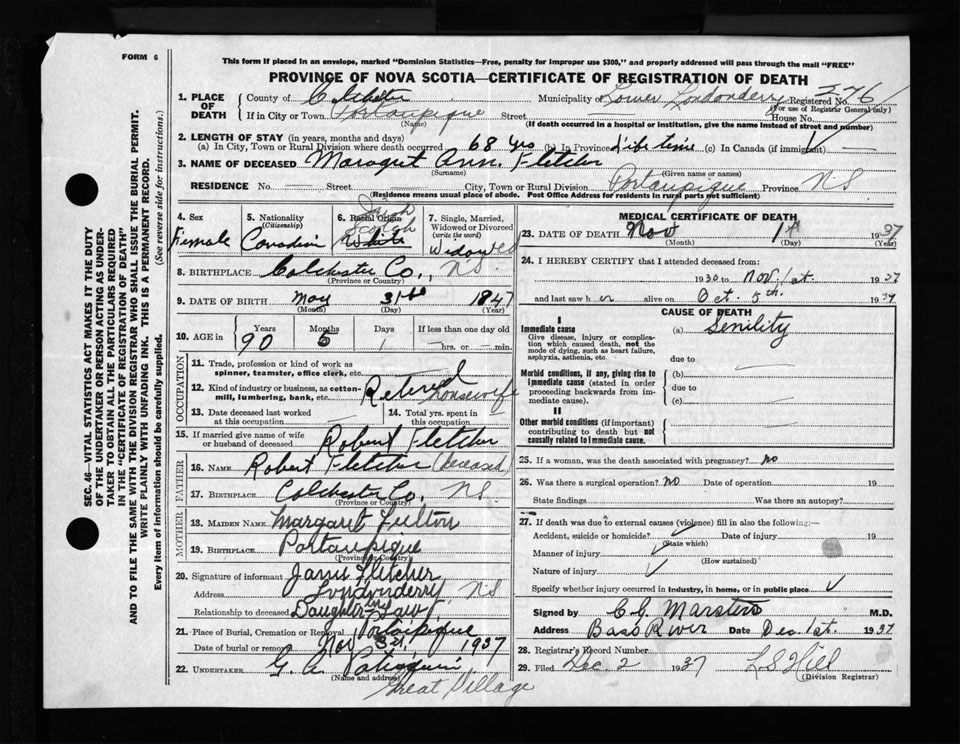 FORM 6
This form if placed in an envelope, marked "Dominion Statistics—Free, penalty for improper use $300," and properly addressed will pass through the mail "FREE"
PROVINCE OF NOVA SCOTIA—CERTIFICATE OF REGISTRATION OF DEATH
1. PLACE OF DEATH
County of Colchester Municipality of Lower Londonderry Registered No. 276
(For use of Registrar General only)
If in City or Town Portaupique Street — House No. —
(Name) (If death occurred in a hospital or institution, give the name instead of street and number)
2. LENGTH OF STAY (in years, months and days)
(a) In City, Town or Rural Division where death occurred 68 yrs (b) In Province Life time (c) In Canada (if immigrant) —
3. NAME OF DECEASED Maragret Ann. Fletcher
(Surname) (Given name or names)
RESIDENCE No. — Street — City, Town or Rural Division Portaupique Province N S
(Residence means usual place of abode. Post Office Address for residents in rural parts not sufficient)
4. Sex
Female
5. Nationality
(Citizenship)
Canadian
6. Racial Origin
Scotch
White
7. Single, Married, Widowed or Divorced
(write the word)
Widowed
8. BIRTHPLACE Colchester Co., N.S.
(Province or Country)
9. DATE OF BIRTH May 31st 1847
(Month) (Day) (Year)
10. AGE in
Years Months Days If less than one day old
90 5 1 —hrs. or —min.
OCCUPATION
11. Trade, profession or kind of work as spinner, teamster, office clerk, etc.
12. Kind of industry or business, as cotton-mill, lumbering, bank, etc.
Retired housewife
13. Date deceased last worked at this occupation —
14. Total yrs. spent in this occupation —
15. If married give name of wife or husband of deceased Robert Fletcher
FATHER
16. NAME Robert Fletcher (deceased)
17. BIRTHPLACE Colchester Co., N.S.
(Province or Country)
MOTHER
18. MAIDEN NAME Margaret Fulton
19. BIRTHPLACE Portaupique
(Province or Country)
20. Signature of informant Fletcher
Address Londonderry N S
Relationship to deceased Daughter in Law
21. Place of Burial, Cremation or Removal Portaupique
Date of burial or removal Nov 3rd 1937
22. UNDERTAKER G. A.
(Name and address)
Great Village
MEDICAL CERTIFICATE OF DEATH
23. DATE OF DEATH Nov 1st 1937
(Month) (Day) (Year)
24. I HEREBY CERTIFY that I attended deceased from:
1930 to Nov 1st. 1937
and last saw h er alive on Oct. 5th. 1937
CAUSE OF DEATH
I
Immediate cause
(a) Senility
Give disease, injury or complication which caused death, not the mode of dying, such as heart failure, asphyxia, asthenia, etc.
due to
Morbid conditions, if any, giving rise to immediate cause (stated in order proceeding backwards from immediate cause).
(b)
due to
(c)
II
Other morbid conditions (if important) contributing to death but not causally related to immediate cause.
25. If a woman, was the death associated with pregnancy? no
26. Was there a surgical operation? no Date of operation 19
State findings Was there an autopsy?
27. If death was due to external causes (violence) fill in also the following:—
Accident, suicide or homicide? Date of injury 19
(State which)
Manner of injury
(How sustained)
Nature of injury
Specify whether injury occurred in industry, in home, or in public place
Signed by C G Marsters M.D.
Address Bass River Date Dec. 1st. 1937
28. Registrar's Record Number
29. Filed Dec. 2 1937 L S Hill
(Division Registrar)
SEC. 46—VITAL STATISTICS ACT MAKES IT THE DUTY
OF THE UNDERTAKER OR PERSON ACTING AS UNDER-
TAKER TO OBTAIN ALL THE PARTICULARS REQUIRED
IN THE "CERTIFICATE OF REGISTRATION OF DEATH"
AND TO FILE THE SAME WITH THE DIVISION REGISTRAR WHO SHALL ISSUE THE BURIAL PERMIT.
WRITE PLAINLY WITH UNFADING INK. THIS IS A PERMANENT RECORD.
Every item of information should be carefully supplied. (See reverse side for instructions.)